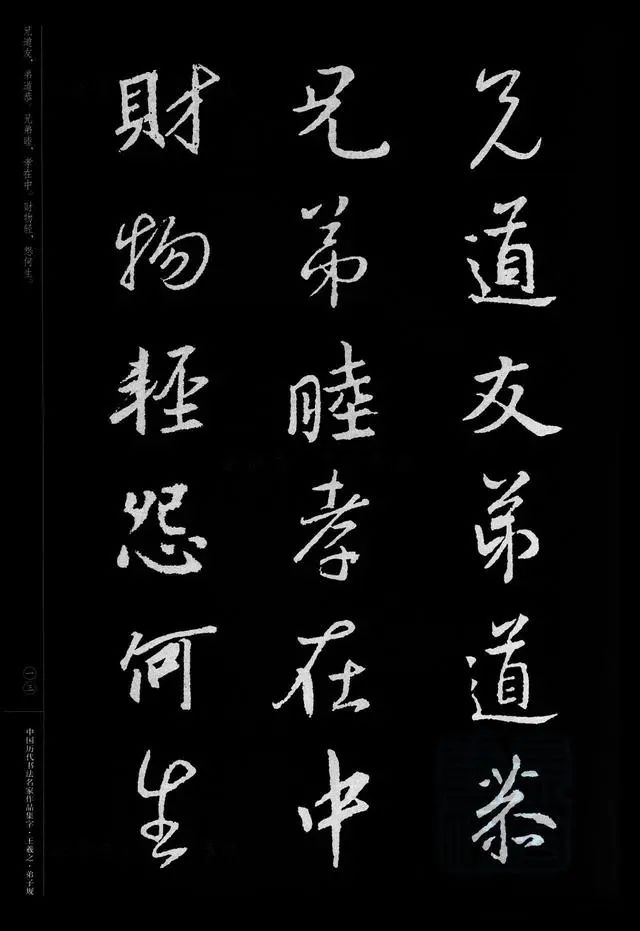 兄道友弟道恭
兄弟睦孝在中
財物輕怨何生
兄道友，弟道恭，兄弟睦，孝在中。财物轻，怨何生。
一三
中国历代书法名家作品集字·王羲之·弟子规